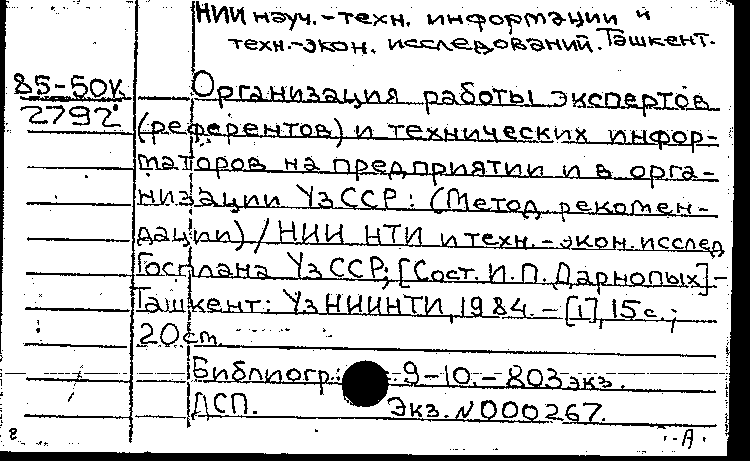 НИИ науч.-техн. информации и
техн.-экон. исследований. Ташкент.
85-50К
2792
Организация работы экспертов
(референтов) и технических инфор-
маторов на предприятии и в орга-
низации УзССР: (Метод. рекомен-
дации) / НИИ НТИ и техн.-экон. исслед.
Госплана УзССР; [Сост. И.П. Дарнопых].-
Ташкент: УзНИИНТИ, 1984.-[1], 15 с.;
20 см.
Библиогр.: 9-10.-803 экз.
ДСП. Экз. N000267.
8 -А-